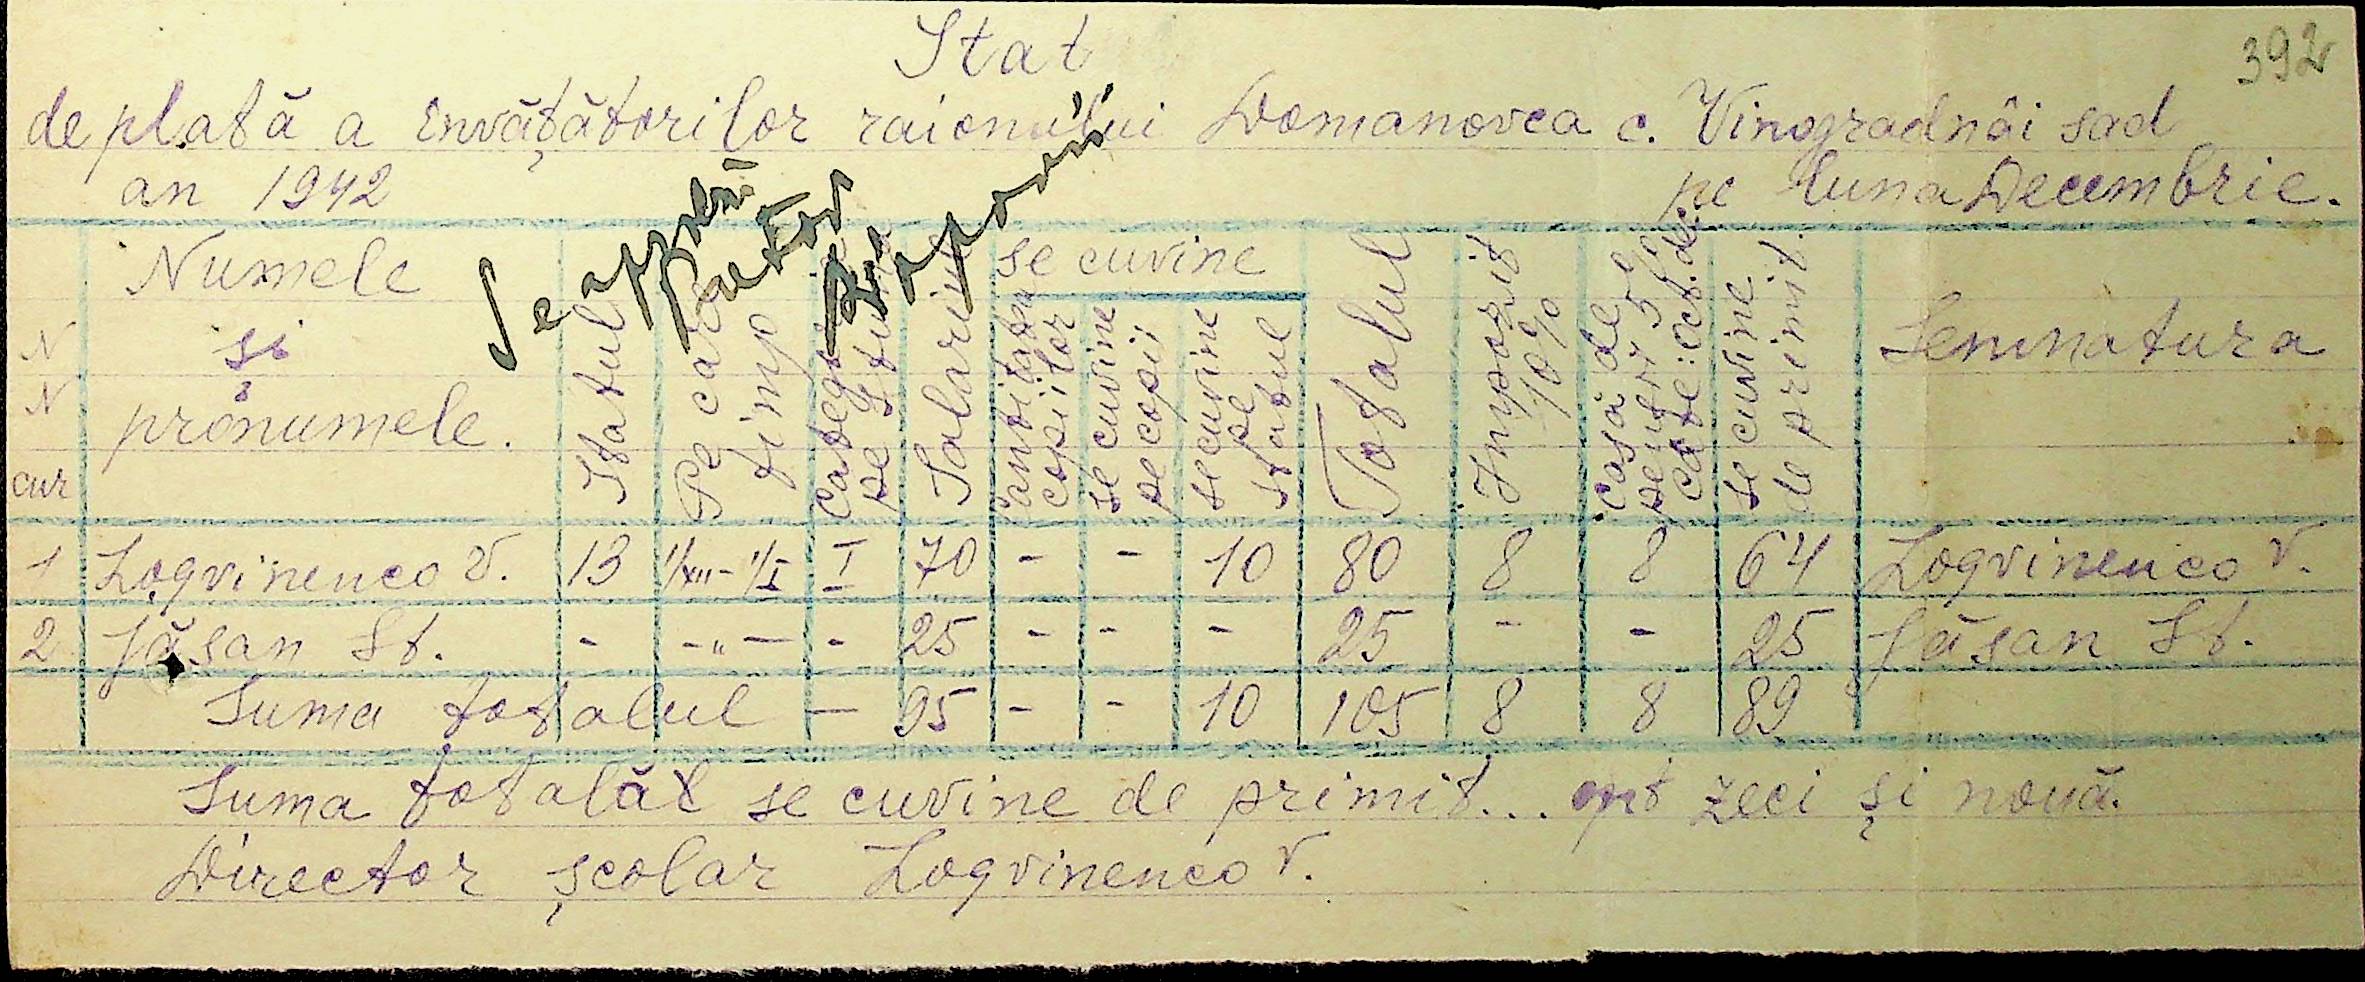 392
Stat
de plată a envățătorilor raionului Domanovca c. Vinogradnôi sad
an 1942 pe luna Decembrie.
N N cur
Numele și pronumele.
Statul
Pe care timp
Categ
pe
Salariul
se cuvine
copiilor
se cuvine pe copii
se cuvine pe statul
Totalul
Impozit 10%
Casă de pentru 5%
se cuvine de primit.
Semnatura
1 Logvinenco V. 13 1/XII - 1/I I 70 - - 10 80 8 8 64 Logvinenco V.
2 Jăsan St. - -"- - 25 - - - 25 - - 25 Jăsan St.
Suma totalul - 95 - - 10 105 8 8 89
Suma totalăl se cuvine de primit... opt zeci și nouă.
Director școlar Logvinenco V.